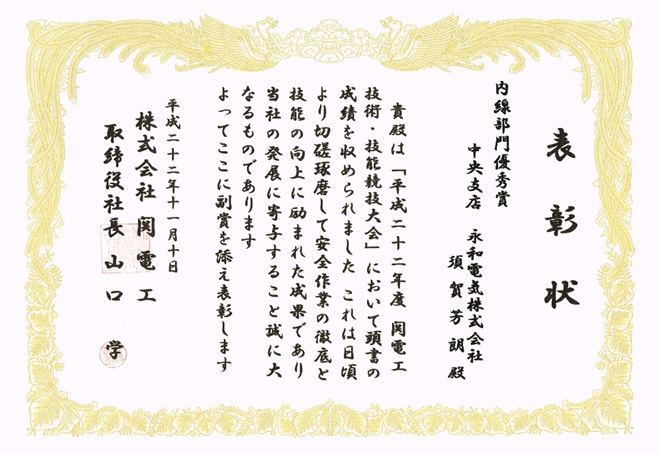 表彰状
内線部門優秀賞
中央支店 永和電気株式会社
須賀芳朗殿
貴殿は「平成二十二年度 関電工
技術・技能競技大会」において頭書の
成績を収められました これは日頃
より切磋琢磨して安全作業の徹底と
技能の向上に励まれた成果であり
当社の発展に寄与すること誠に大
なるものであります
よってここに副賞を添え表彰します
平成二十二年十一月十日
株式会社 関電工
取締役社長 山口 学